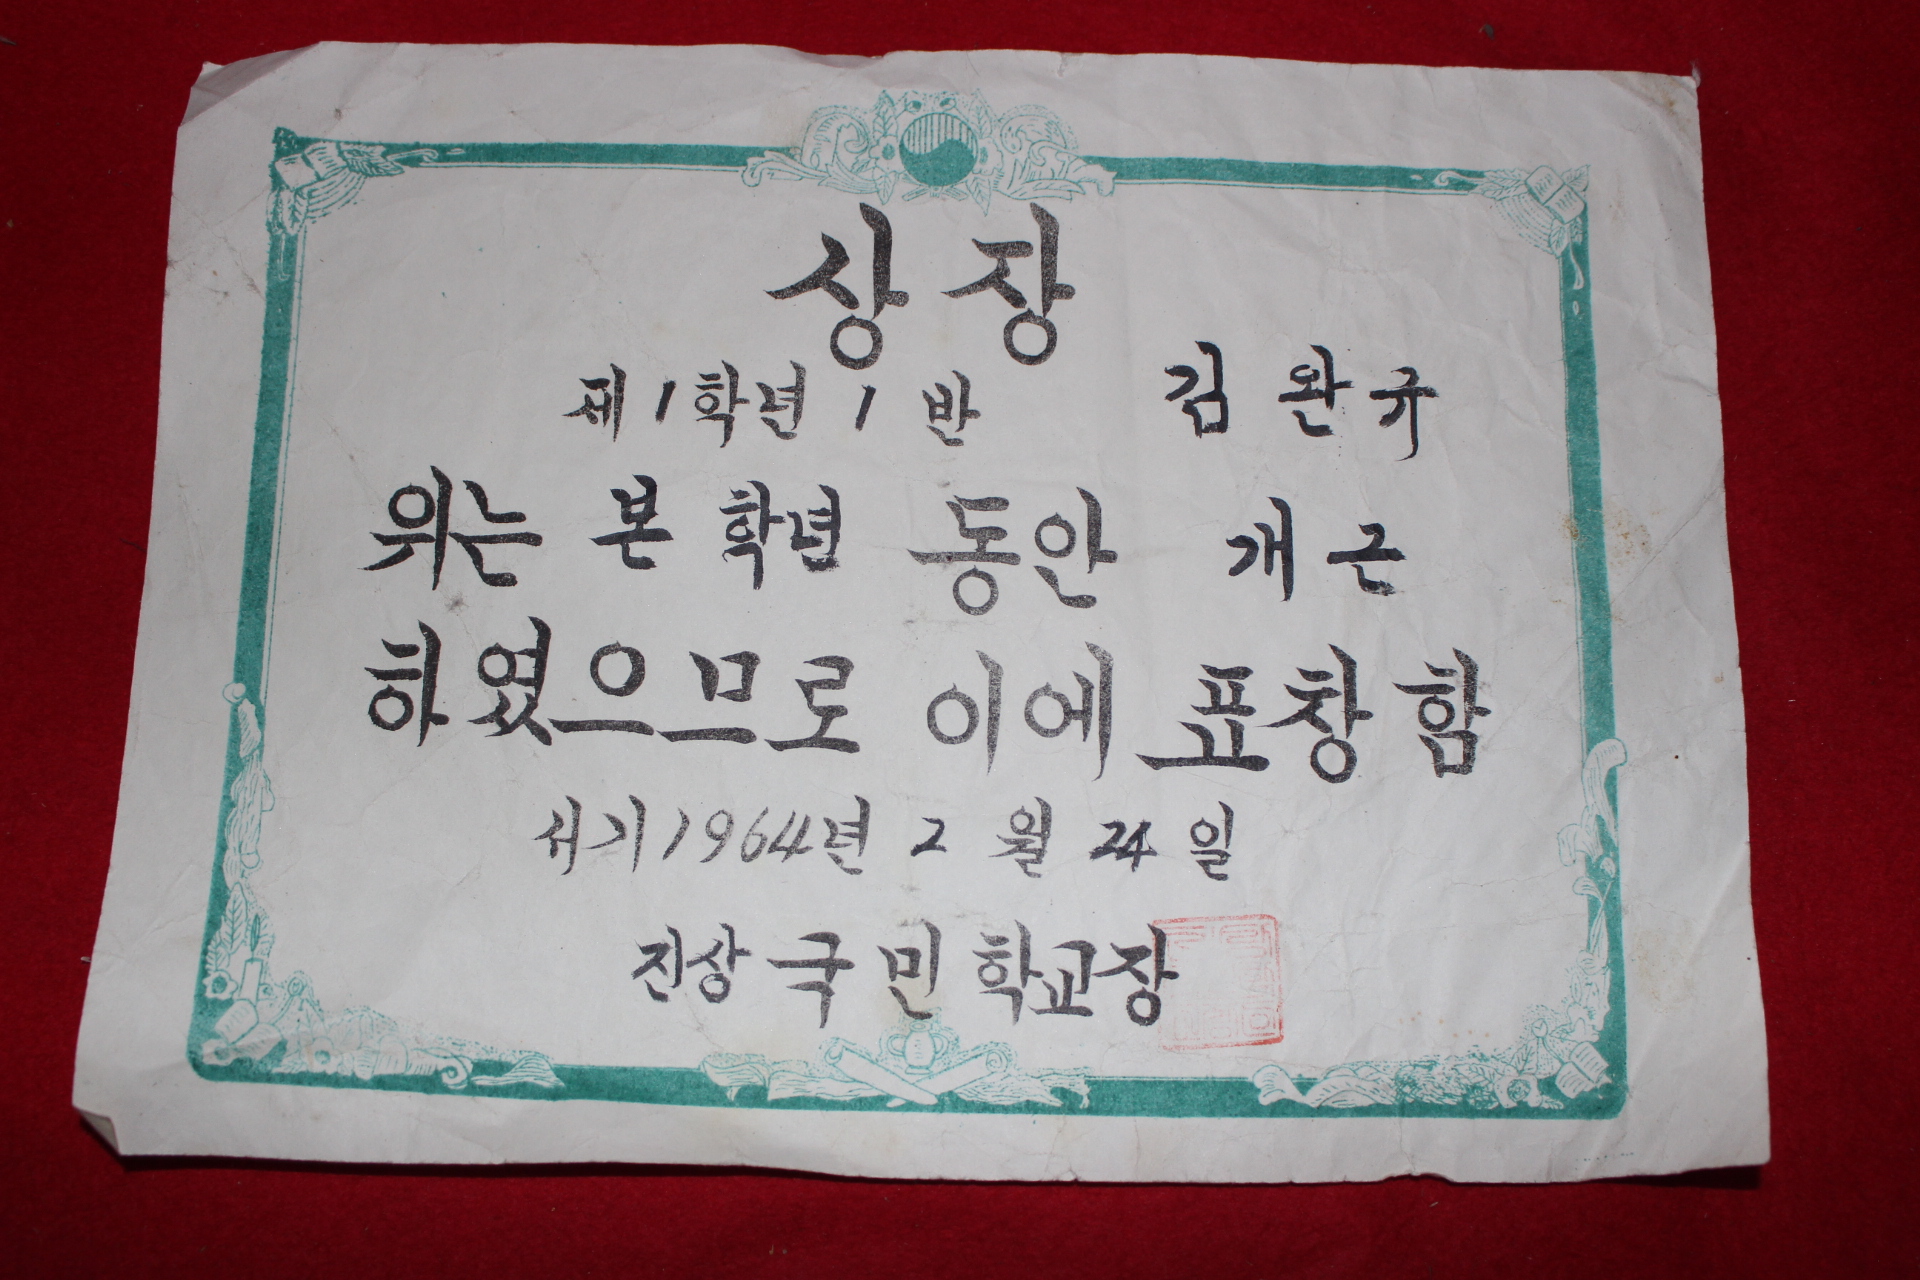 상장
제1학년 1반 김완규
위는 본 학년 동안 개근
하였으므로 이에 표창함
서기1964년 2월 24일
진상국민학교장